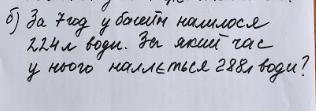 б) За 7 год у басейн налилося
224 л води. За який час
у нього наллється 288 л води?